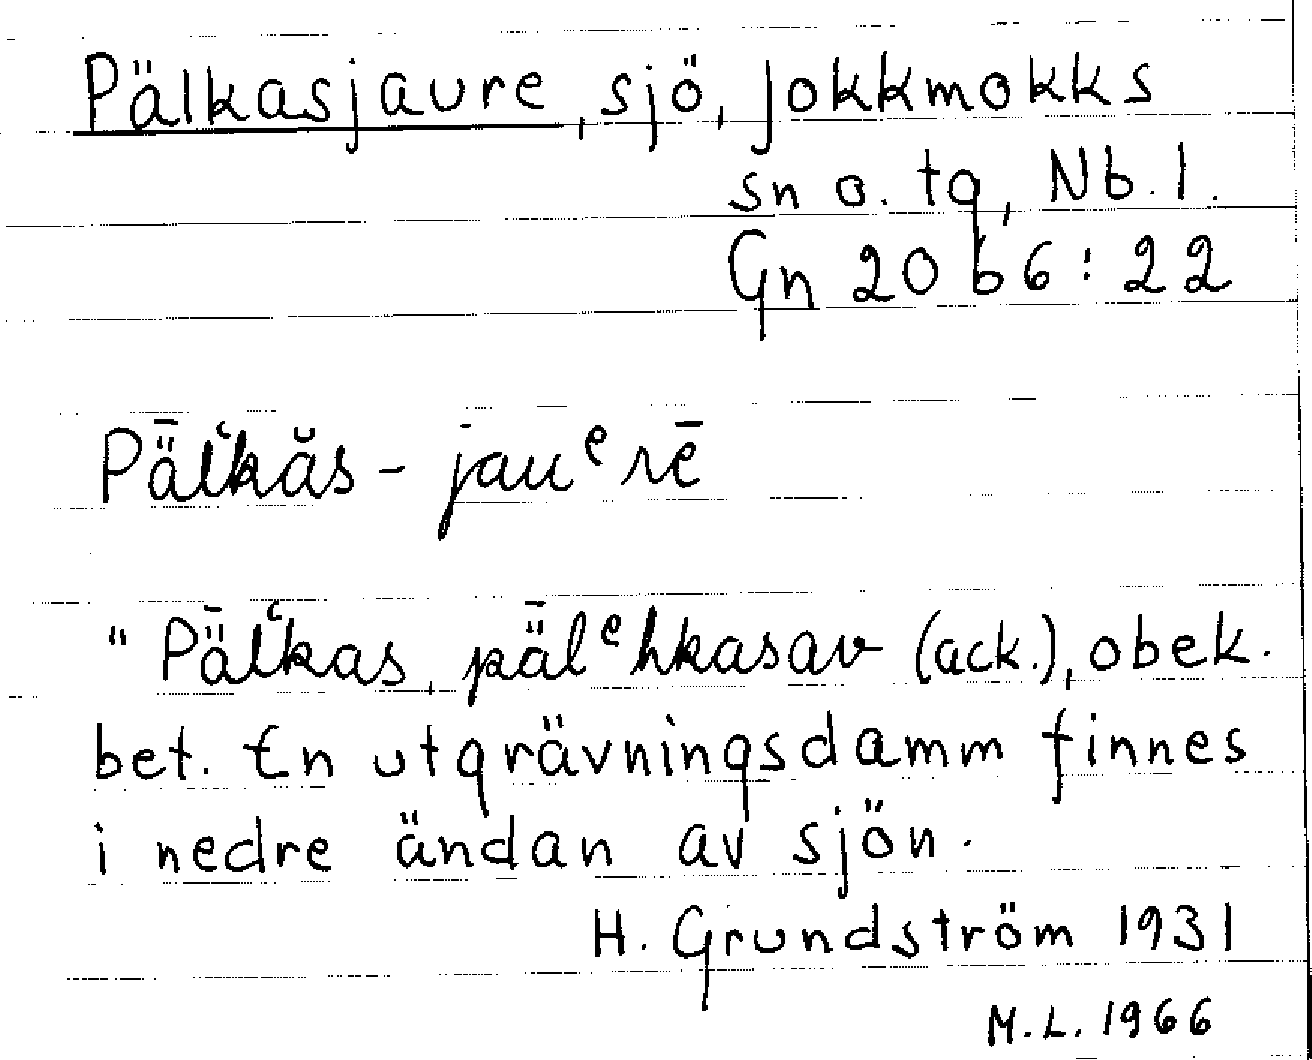 Pälkasjaure, sjö, Jokkmokks
sn o. tg, Nb. l.
Gn 20 b 6 : 22
Pǟlʿkăs - jauᵉrē
" Pǟlʿkas, pǟlᵉhkasav (ack.), obek.
bet. En utgrävningsdamm finnes
i nedre ändan av sjön.
H. Grundström 1931
M.L. 1966